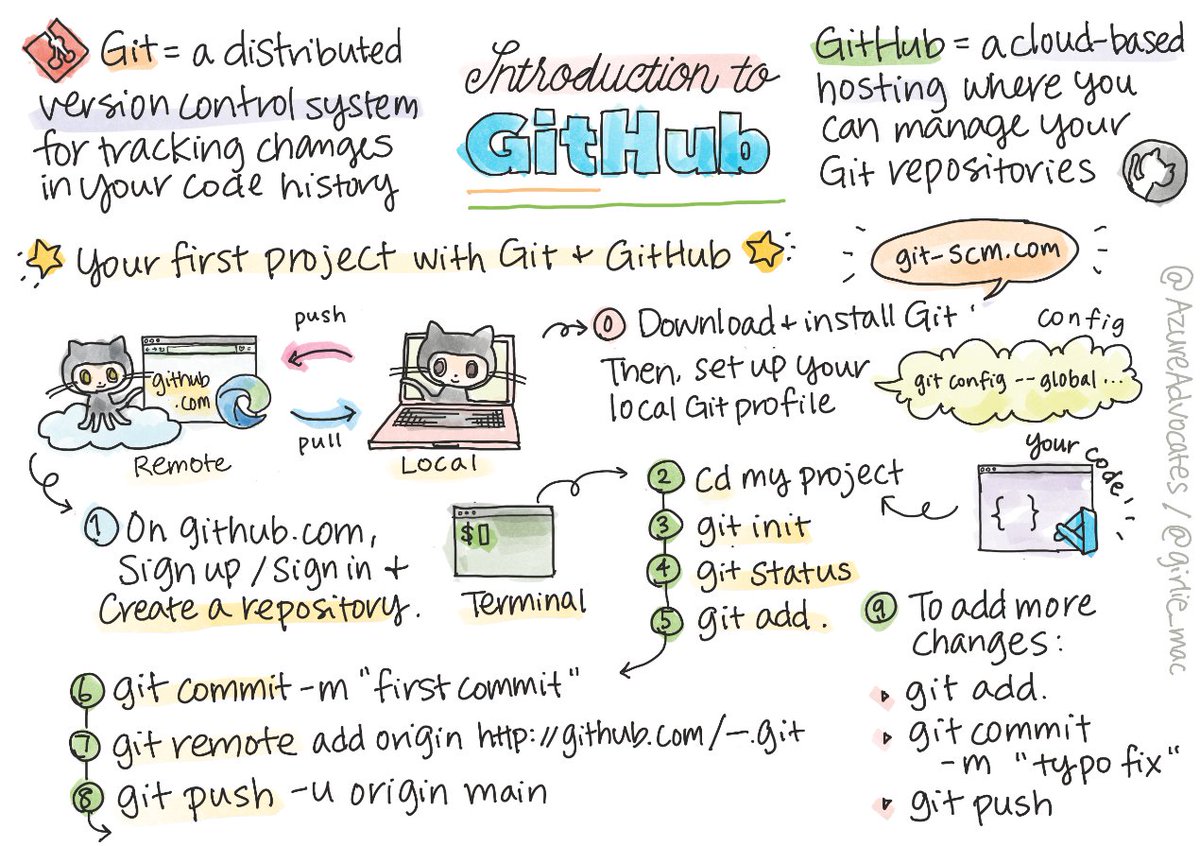 Git = a distributed
version control system
for tracking changes
in your code history
Introduction to
GitHub
GitHub = a cloud-based
hosting where you
can manage your
Git repositories
Your first project with Git + GitHub
git-scm.com
push
pull
github
.com
Remote
Local
0 Download + install Git
Then, set up your
local Git profile
config
git config --global ...
1 On github.com,
Sign up / Sign in +
Create a repository.
$
Terminal
2 cd my project
3 git init
4 git status
5 git add .
your code
{ }
6 git commit -m "first commit"
7 git remote add origin http://github.com/~.git
8 git push -u origin main
9 To add more
changes:
git add.
git commit
-m "typo fix"
git push
@AzureAdvocates / @girlie_mac